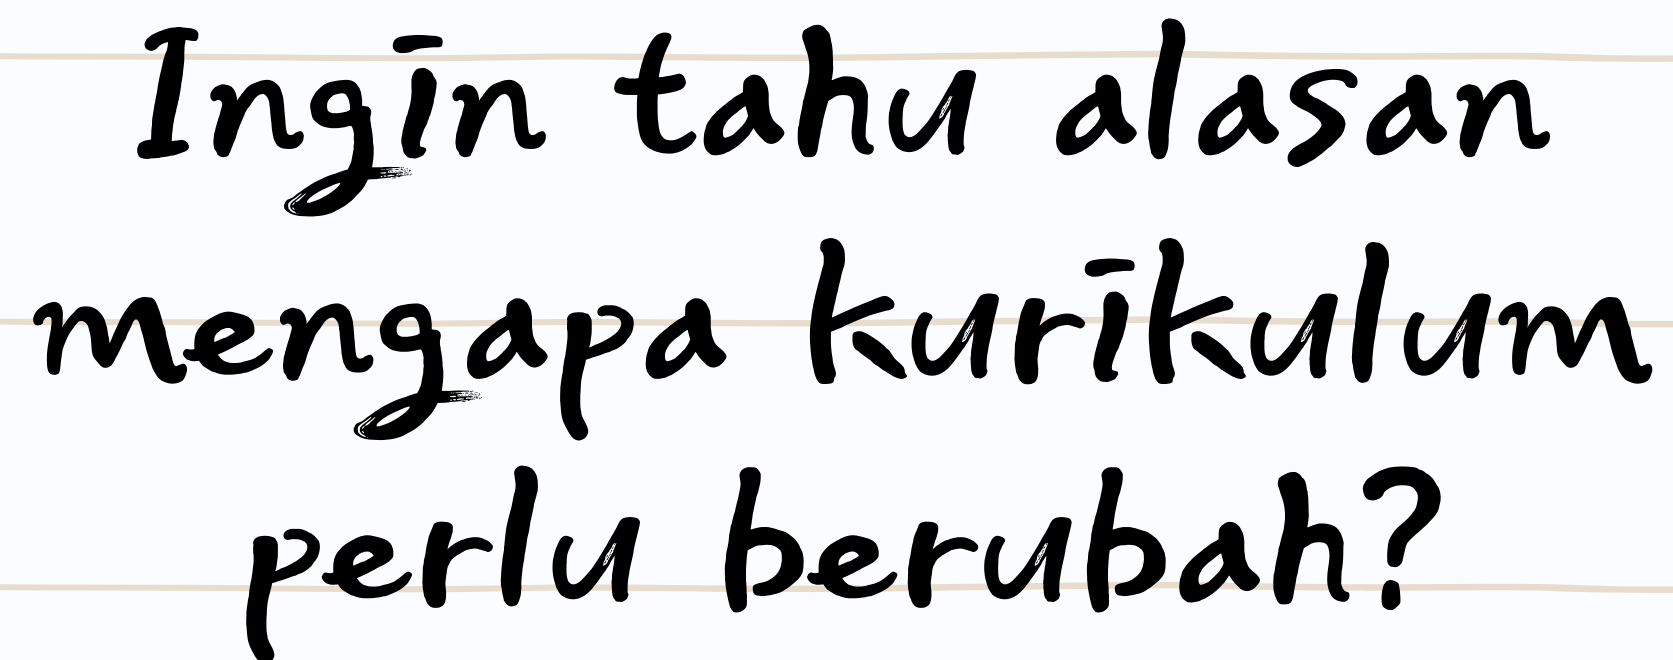 Ingin tahu alasan
mengapa kurikulum
perlu berubah?